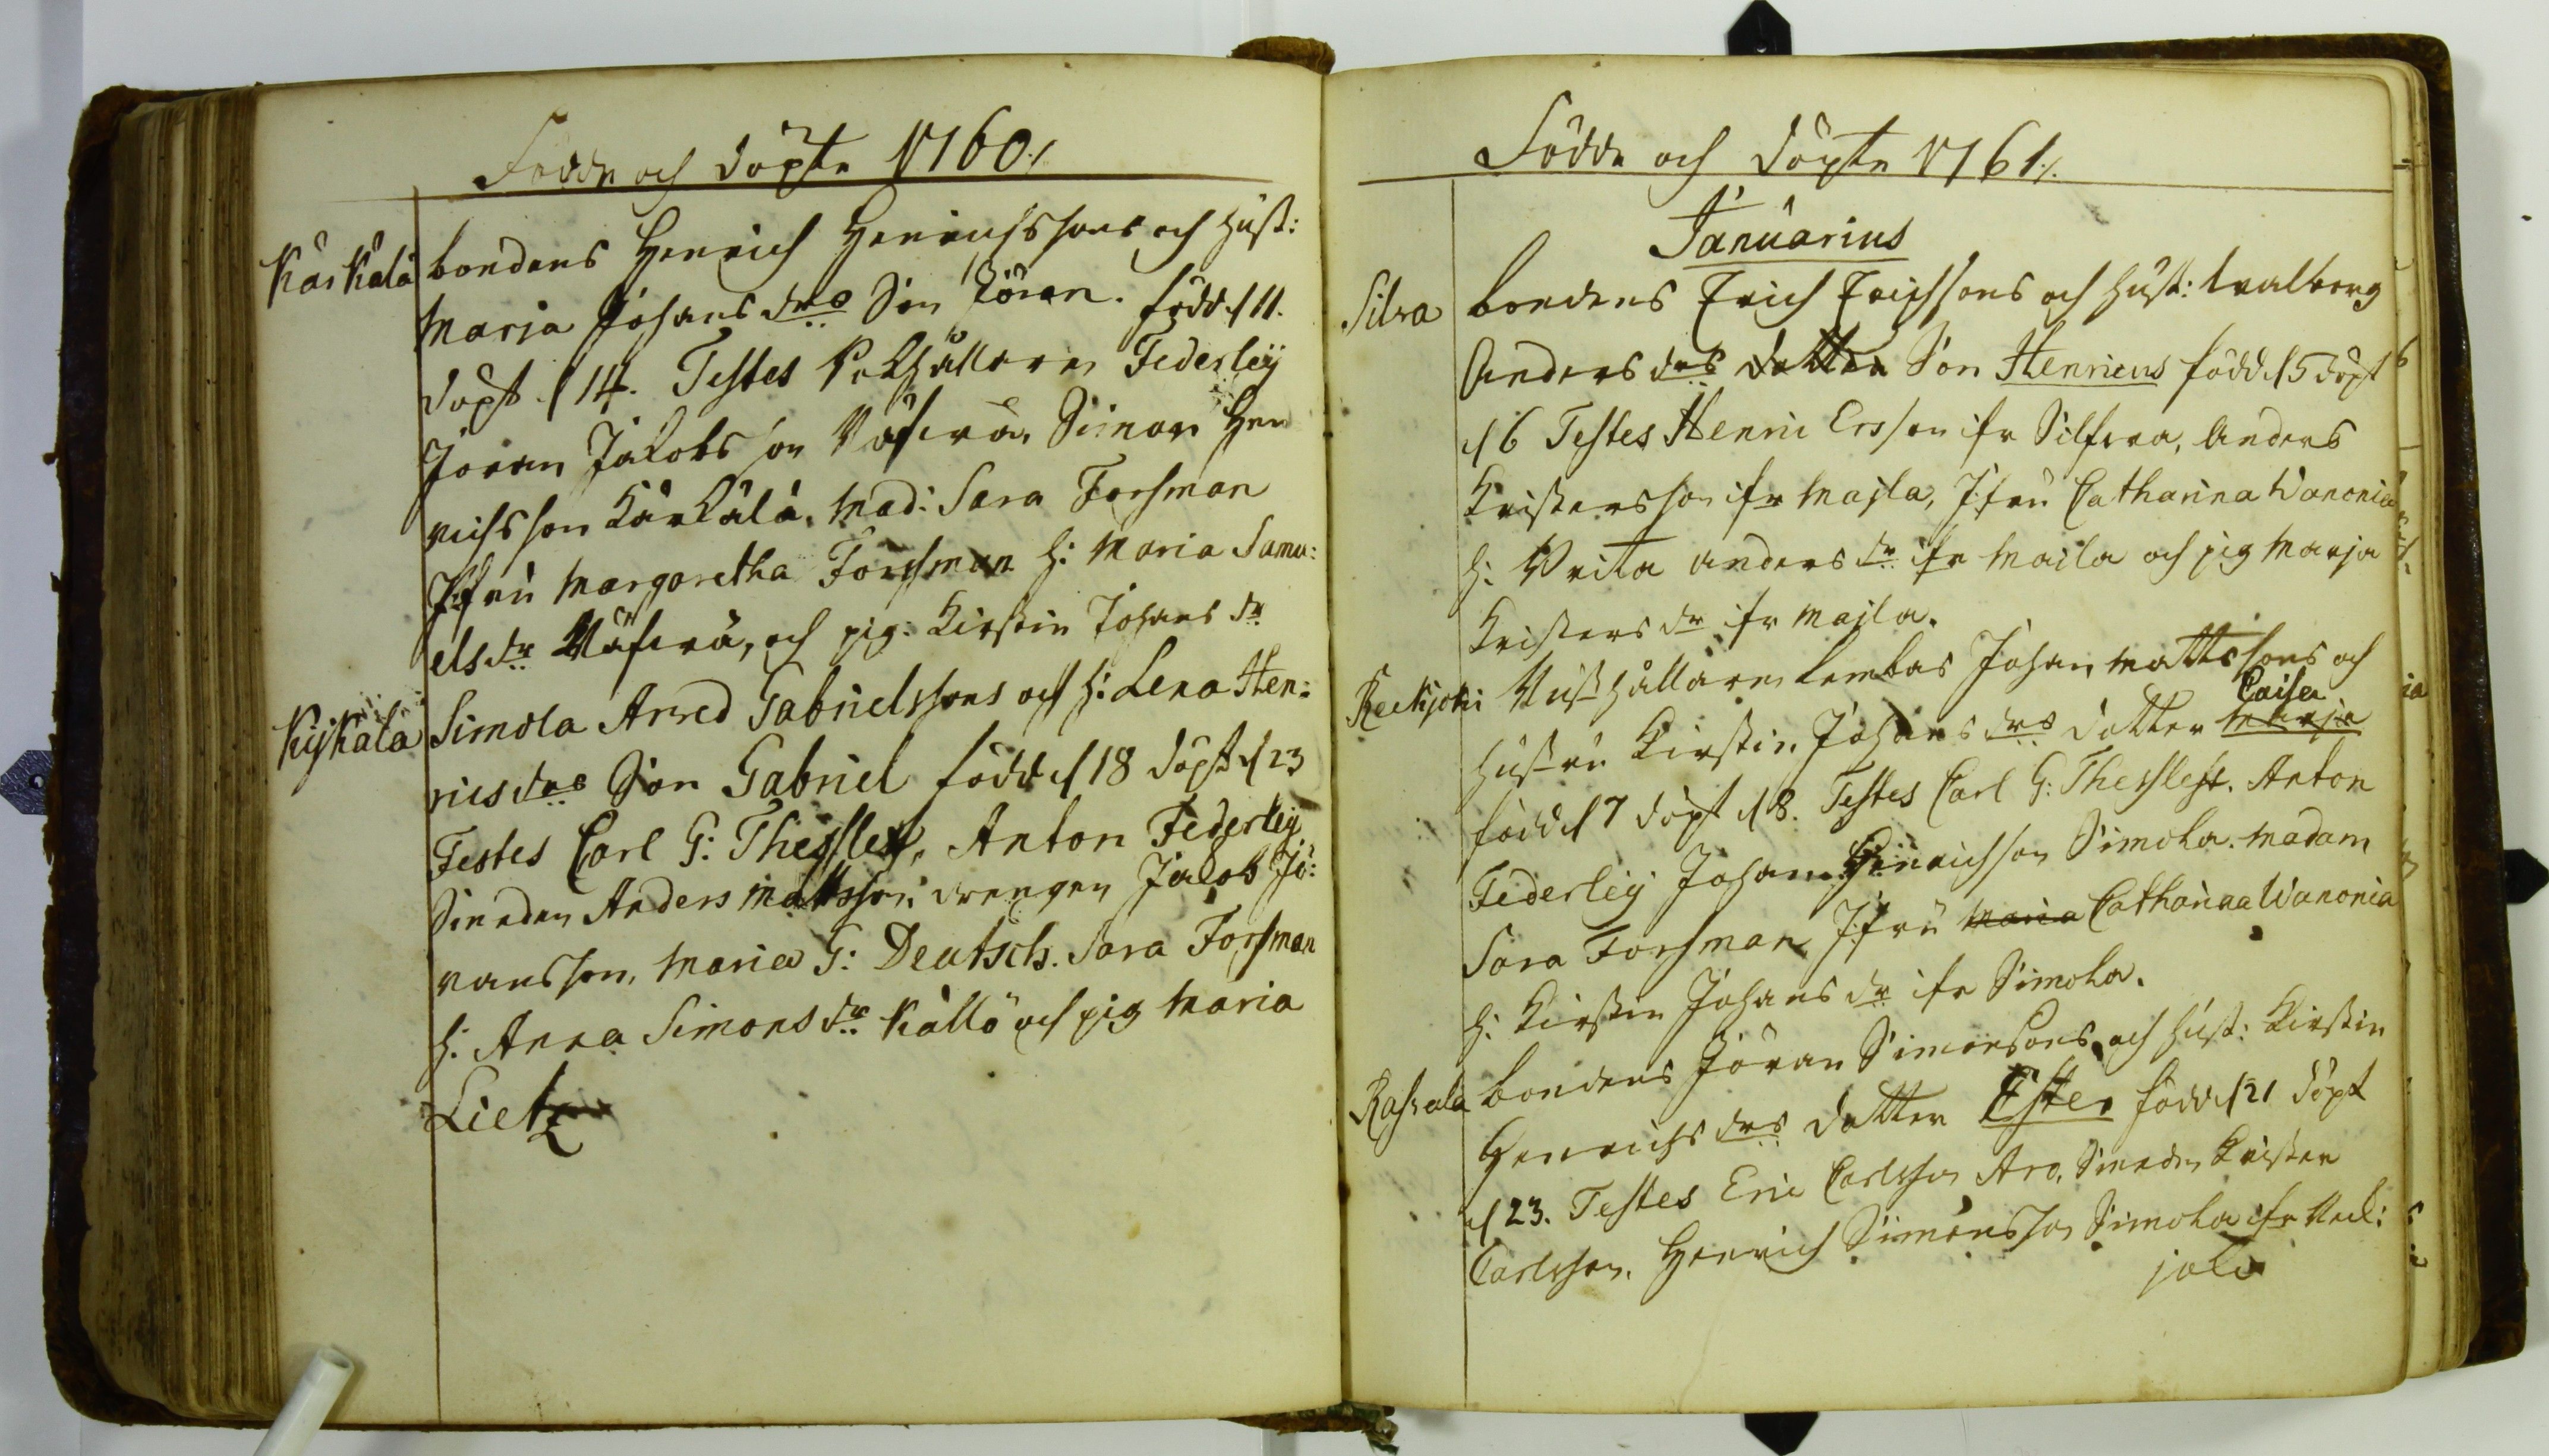 Födde och döpte 1760./.
Kärkälä
bondens Henrich Henrichssons och hust:
Maria Johans drs Son Jöran. född d 11.
döpt d 14. Testes Rusthållaren Federleÿ
Jöran Jakobsson Wäsirä, Simon Hen
richsson Kärkälä. Mad: Sara Forsman
Jfru Margaretha Forsman h: Maria Samu:
els dr Wäsirä, och pig: Kirstin Johans dr
Kijkala
Simola Arred Gabrielssons och h: Lena Hen:
rics drs Son Gabriel född d 18 döpt d 23
Testes Carl G: Thesslef, Anton Federleÿ
Smeden Anders Mattsson drengen Jakob Jö:
ransson, Maria G: Deutsch. Sara Forsman
h: Anna Simons dr Källö och pig Maria
Lietz
Födde och Döpte 1761./.
Januarius
Silva
bondens Erich Erichssons och hust: Walborg
Anders drs dotter Son Henricus född d 5 döpt
d 6 Testes Henric Ersson ifr Silfva, Anders
Kristersson ifr Majla, Jfru Catharina Wanonia
h: Brita Anders dr ifr Maila och pig Marja
Kristers dr ifr Majla.
Reckijoki
Rusthållaren Lembas Johan Mattssons och
hustru Kirstin Johans drs dotter Marja Caisa
född d 7 döpt d 8. Testes Carl G: Thesslef. Anton
Federleij Johan Henrichsson Simola. Madam
Sara Forsman Jfru Maria Catharina Wanonia
h: Kirstin Johans dr ifr Simola.
Rahvala
bondens Jöran Simonsons och hust: Kirstin
Henrichs drs dotter Ester född d 21 döpt
d 23. Testes Eric Carlsson Aro, Smeden Krister
Carlsson. Henrich Simonsson Simola ifr Reck:
joki